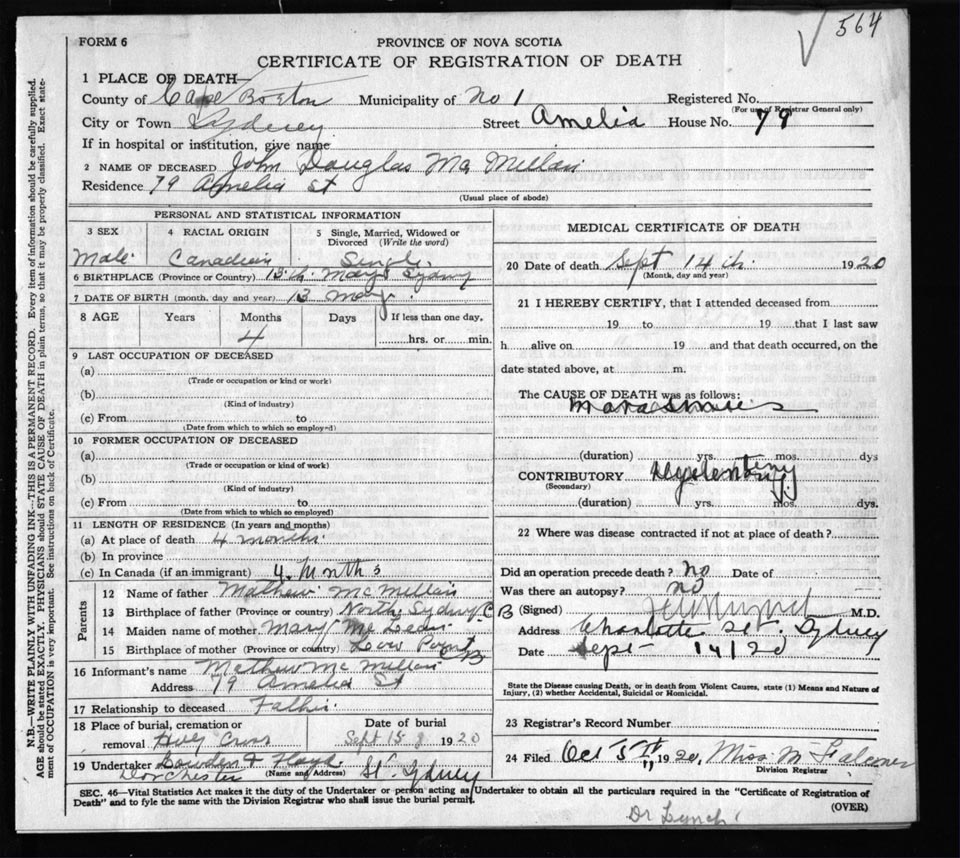 564
FORM 6
PROVINCE OF NOVA SCOTIA
CERTIFICATE OF REGISTRATION OF DEATH
1 PLACE OF DEATH—
County of Cape Breton Municipality of No 1 Registered No.
(For use of Registrar General only)
City or Town Sydney Street Amelia House No. 79
If in hospital or institution, give name
2 NAME OF DECEASED John Douglas Mc Millan
Residence 79 Amelia St
(Usual place of abode)
N.B.—WRITE PLAINLY WITH UNFADING INK.—THIS IS A PERMANENT RECORD. Every item of information should be carefully supplied.
AGE should be stated EXACTLY. PHYSICIANS should STATE CAUSE OF DEATH in plain terms, so that it may be properly classified. Exact state-
ment of OCCUPATION is very important. See instructions on back of Certificate.
PERSONAL AND STATISTICAL INFORMATION
3 SEX 4 RACIAL ORIGIN 5 Single, Married, Widowed or
Divorced (Write the word)
Male Canadian Single
6 BIRTHPLACE (Province or Country) 13th May Sydney
7 DATE OF BIRTH (month, day and year) 13 May
8 AGE Years Months Days If less than one day,
4 hrs. or min.
9 LAST OCCUPATION OF DECEASED
(a)
(Trade or occupation or kind or work)
(b)
(Kind of industry)
(c) From to
(Date from which to which so employed)
10 FORMER OCCUPATION OF DECEASED
(a)
(Trade or occupation or kind of work)
(b)
(Kind of industry)
(c) From to
(Date from which to which so employed)
11 LENGTH OF RESIDENCE (In years and months)
(a) At place of death 4 months
(b) In province
(c) In Canada (if an immigrant) 4 Months
Parents
12 Name of father Mathew McMillan
13 Birthplace of father (Province or country) North Sydney C B
14 Maiden name of mother Mary Mc Lean
15 Birthplace of mother (Province or country) Low Point C B
16 Informant's name Mathew Mc Millan
Address 79 Amelia St
17 Relationship to deceased Father
18 Place of burial, cremation or Date of burial
removal Holy Cross Sept 15 1920
19 Undertaker Lowden & Floyd
(Name and Address)
Dorchester St. Sydney
MEDICAL CERTIFICATE OF DEATH
20 Date of death Sept 14 th 1920
(Month, day and year)
21 I HEREBY CERTIFY, that I attended deceased from
19 to 19 that I last saw
h alive on 19 and that death occurred, on the
date stated above, at m.
The CAUSE OF DEATH was as follows:
Marasmus
(duration) yrs. mos. dys
CONTRIBUTORY Dysentery
(Secondary)
(duration) yrs. mos. dys.
22 Where was disease contracted if not at place of death?
Did an operation precede death? No Date of
Was there an autopsy? no
(Signed) M.D.
Address Charlotte St. Sydney
Date Sept 14/20
State the Disease causing Death, or in death from Violent Causes, state (1) Means and Nature of
Injury, (2) whether Accidental, Suicidal or Homicidal.
23 Registrar's Record Number
24 Filed Oct 5th, 1920, Miss M Falconer
Division Registrar
SEC. 46—Vital Statistics Act makes it the duty of the Undertaker or person acting as Undertaker to obtain all the particulars required in the "Certificate of Registration of
Death" and to fyle the same with the Division Registrar who shall issue the burial permit.
(OVER)
Dr Lynch